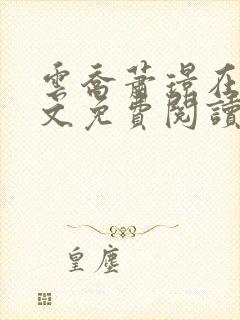 雲喬蕭璟在
文免費閱讀
皇塵